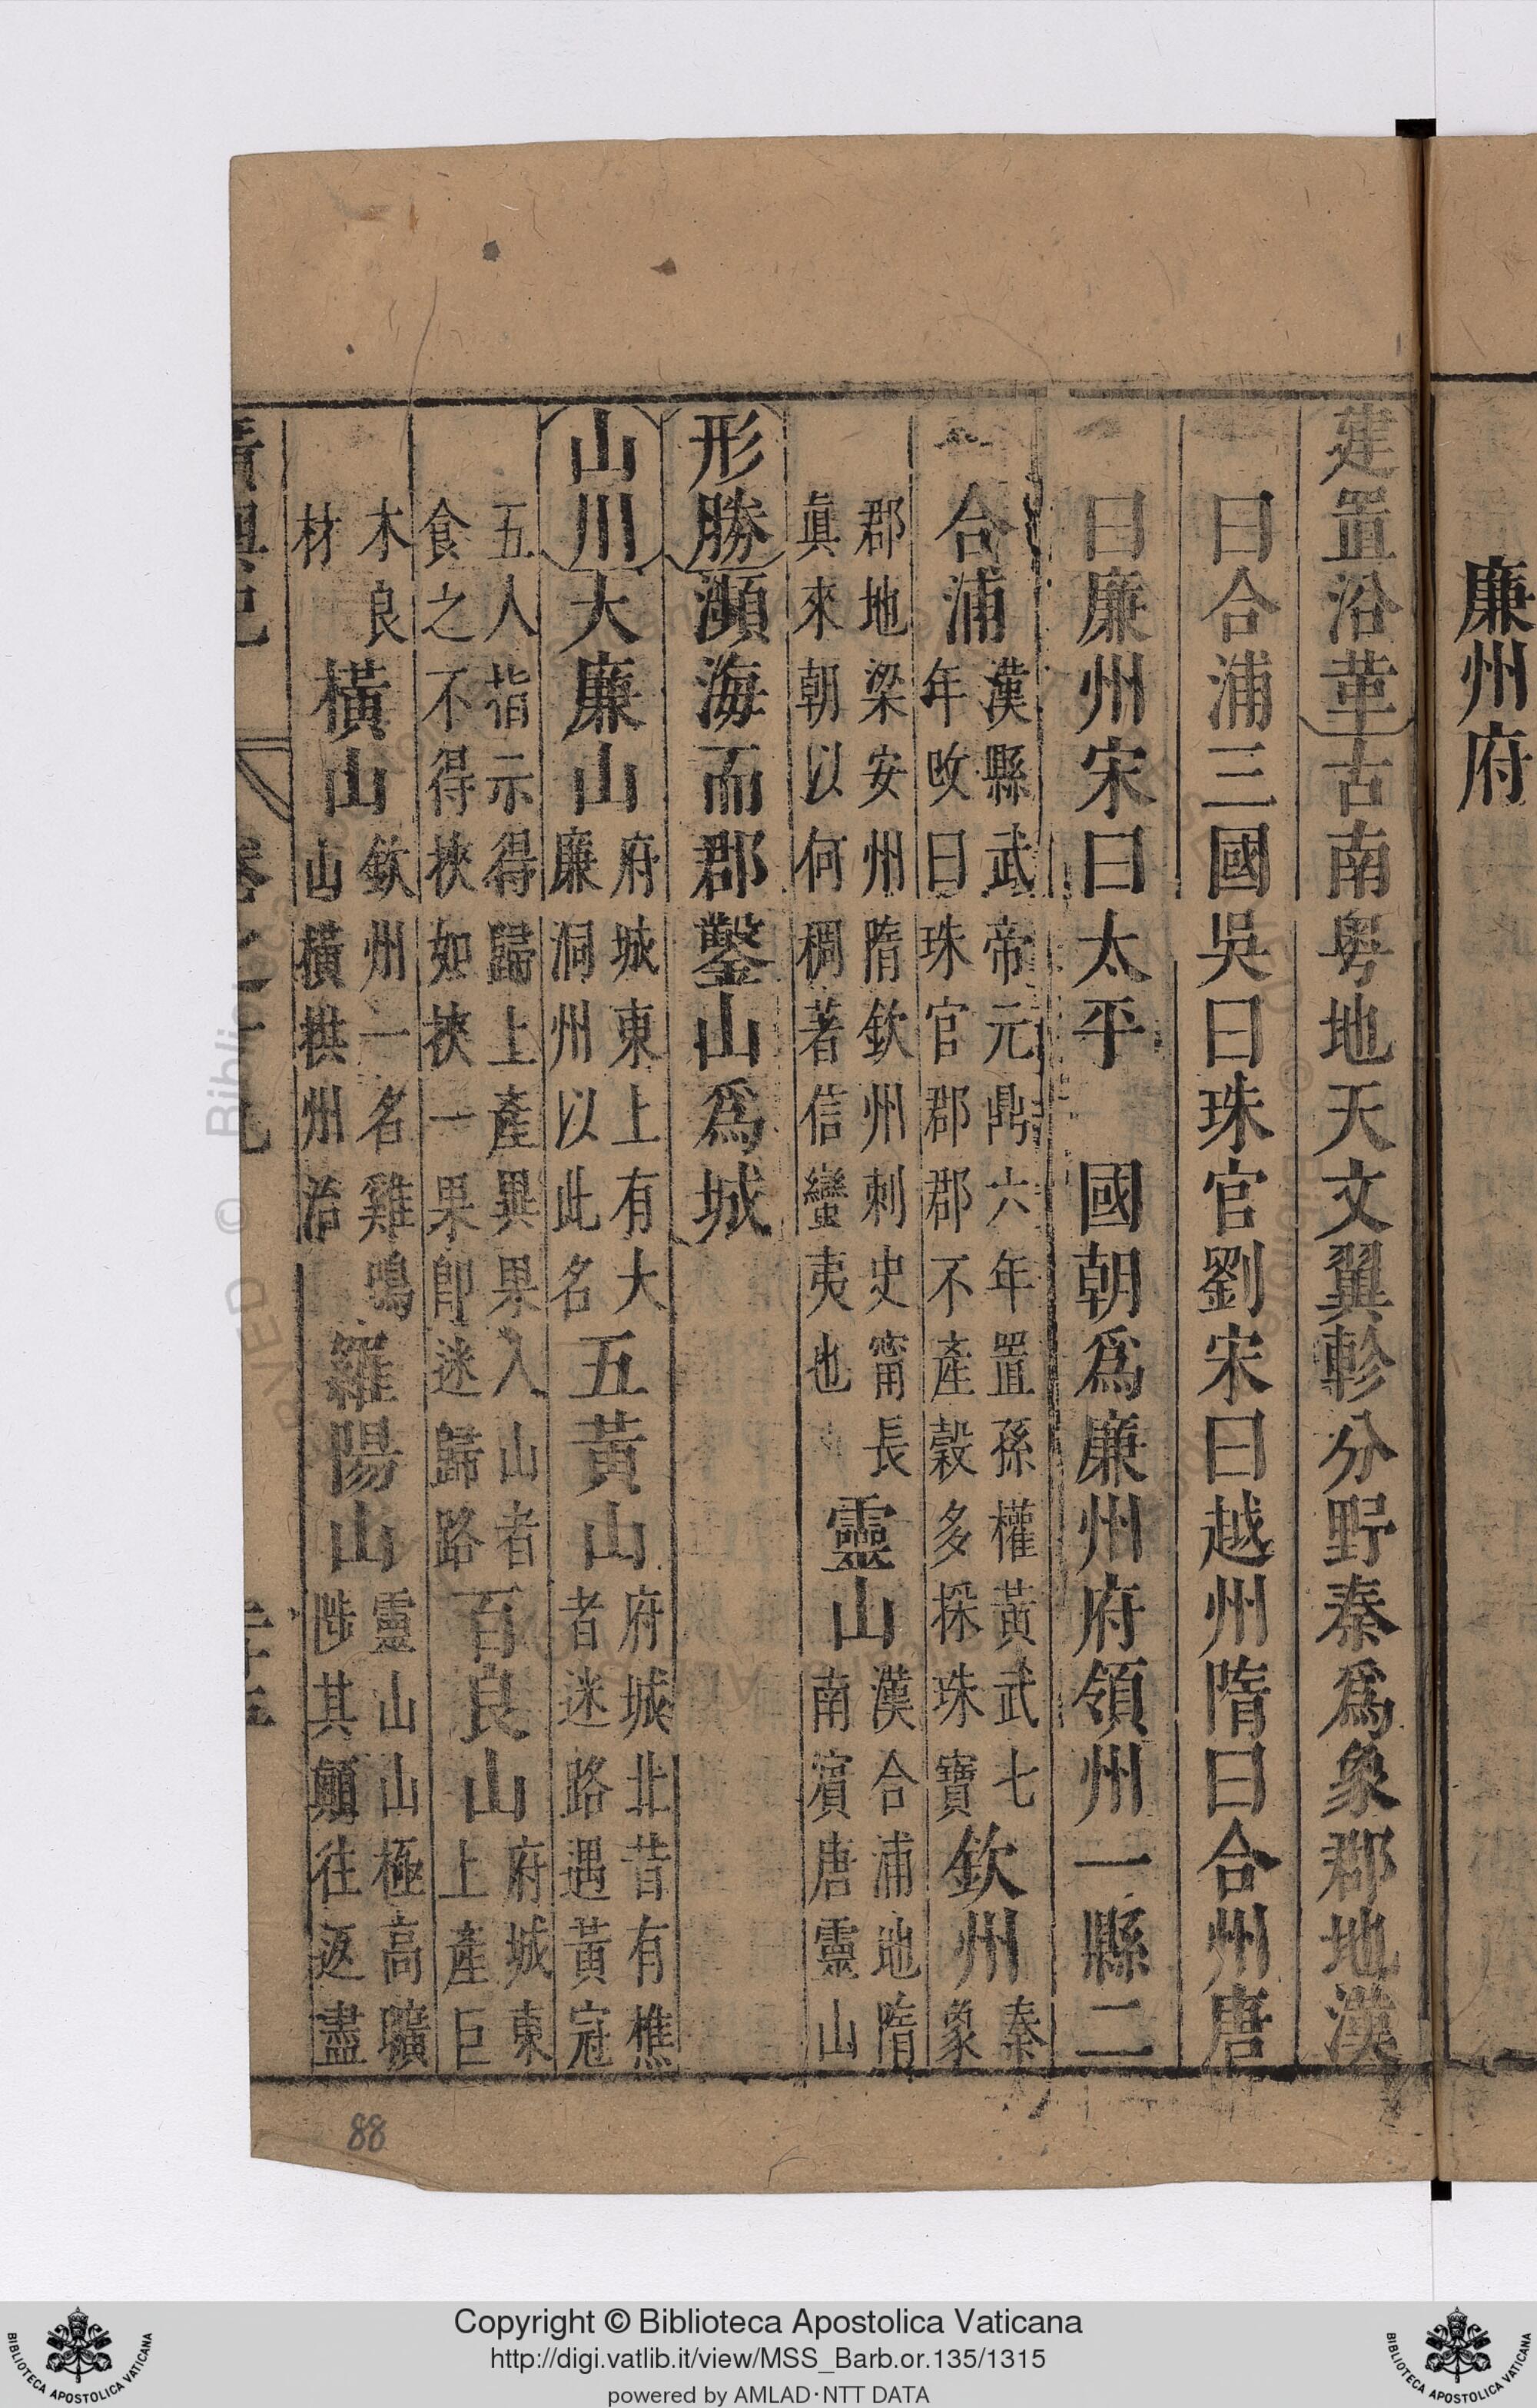 廉州府
建置沿革古南粤地天文翼軫分野秦爲象郡地漢
曰合浦三國吳曰珠官劉宋曰越州隋曰合州唐
曰廉州宋曰太平 國朝爲廉州府領州一縣二
合浦
漢縣武帝元鼎六年置孫權黃武七
年改曰珠官郡郡不產穀多採珠寶
欽州
秦
象
郡地梁安州隋欽州刺史甯長
眞來朝以何稠著信蠻夷也
靈山
漢合浦地隋
南賓唐靈山
形勝瀕海而郡鑿山爲城
山川大廉山
府城東上有大
廉洞州以此名
五黃山
府城北昔有樵
者迷路遇黃冠
五人指示得歸上產異果入山者
食之不得挾如挾一果卽迷歸路
百良山
府城東
上產巨
木良
材
橫山
欽州一名雞鳴
山橫拱州治
羅陽山
靈山山極高曠
陟其顛往返盡
Copyright © Biblioteca Apostolica Vaticana
http://digi.vatlib.it/view/MSS_Barb.or.135/1315
powered by AMLAD·NTT DATA
88
BIBLIOTECA APOSTOLICA VATICANA
BIBLIOTECA APOSTOLICA VATICANA